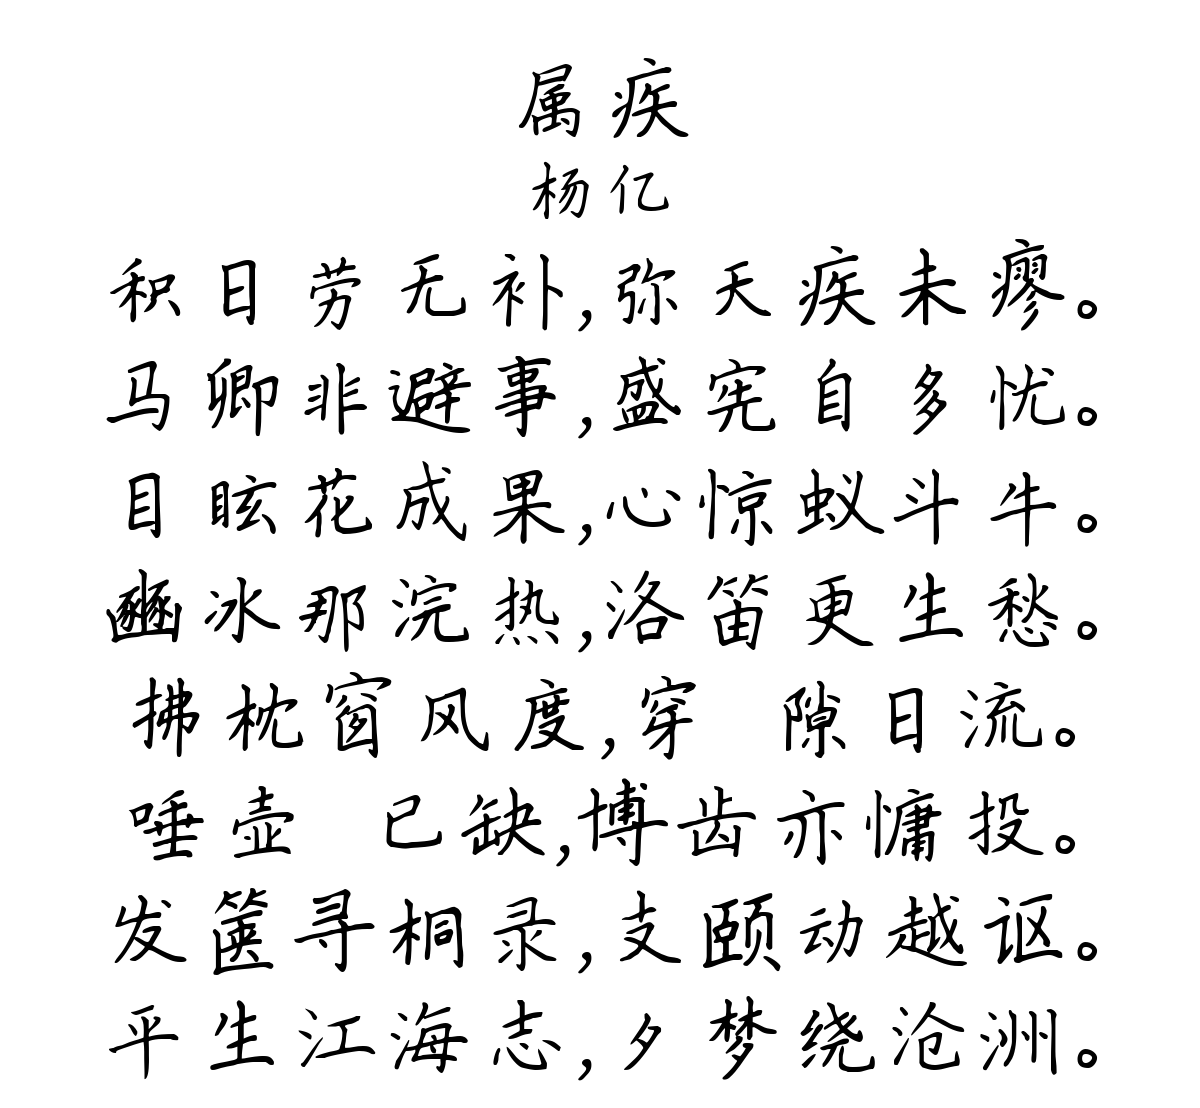 属疾
杨亿
积日劳无补,弥天疾未瘳。
马卿非避事,盛宪自多忧。
目眩花成果,心惊蚁斗牛。
豳冰那浣热,洛笛更生愁。
拂枕窗风度,穿 隙日流。
唾壶 已缺,博齿亦慵投。
发箧寻桐录,支颐动越讴。
平生江海志,夕梦绕沧洲。